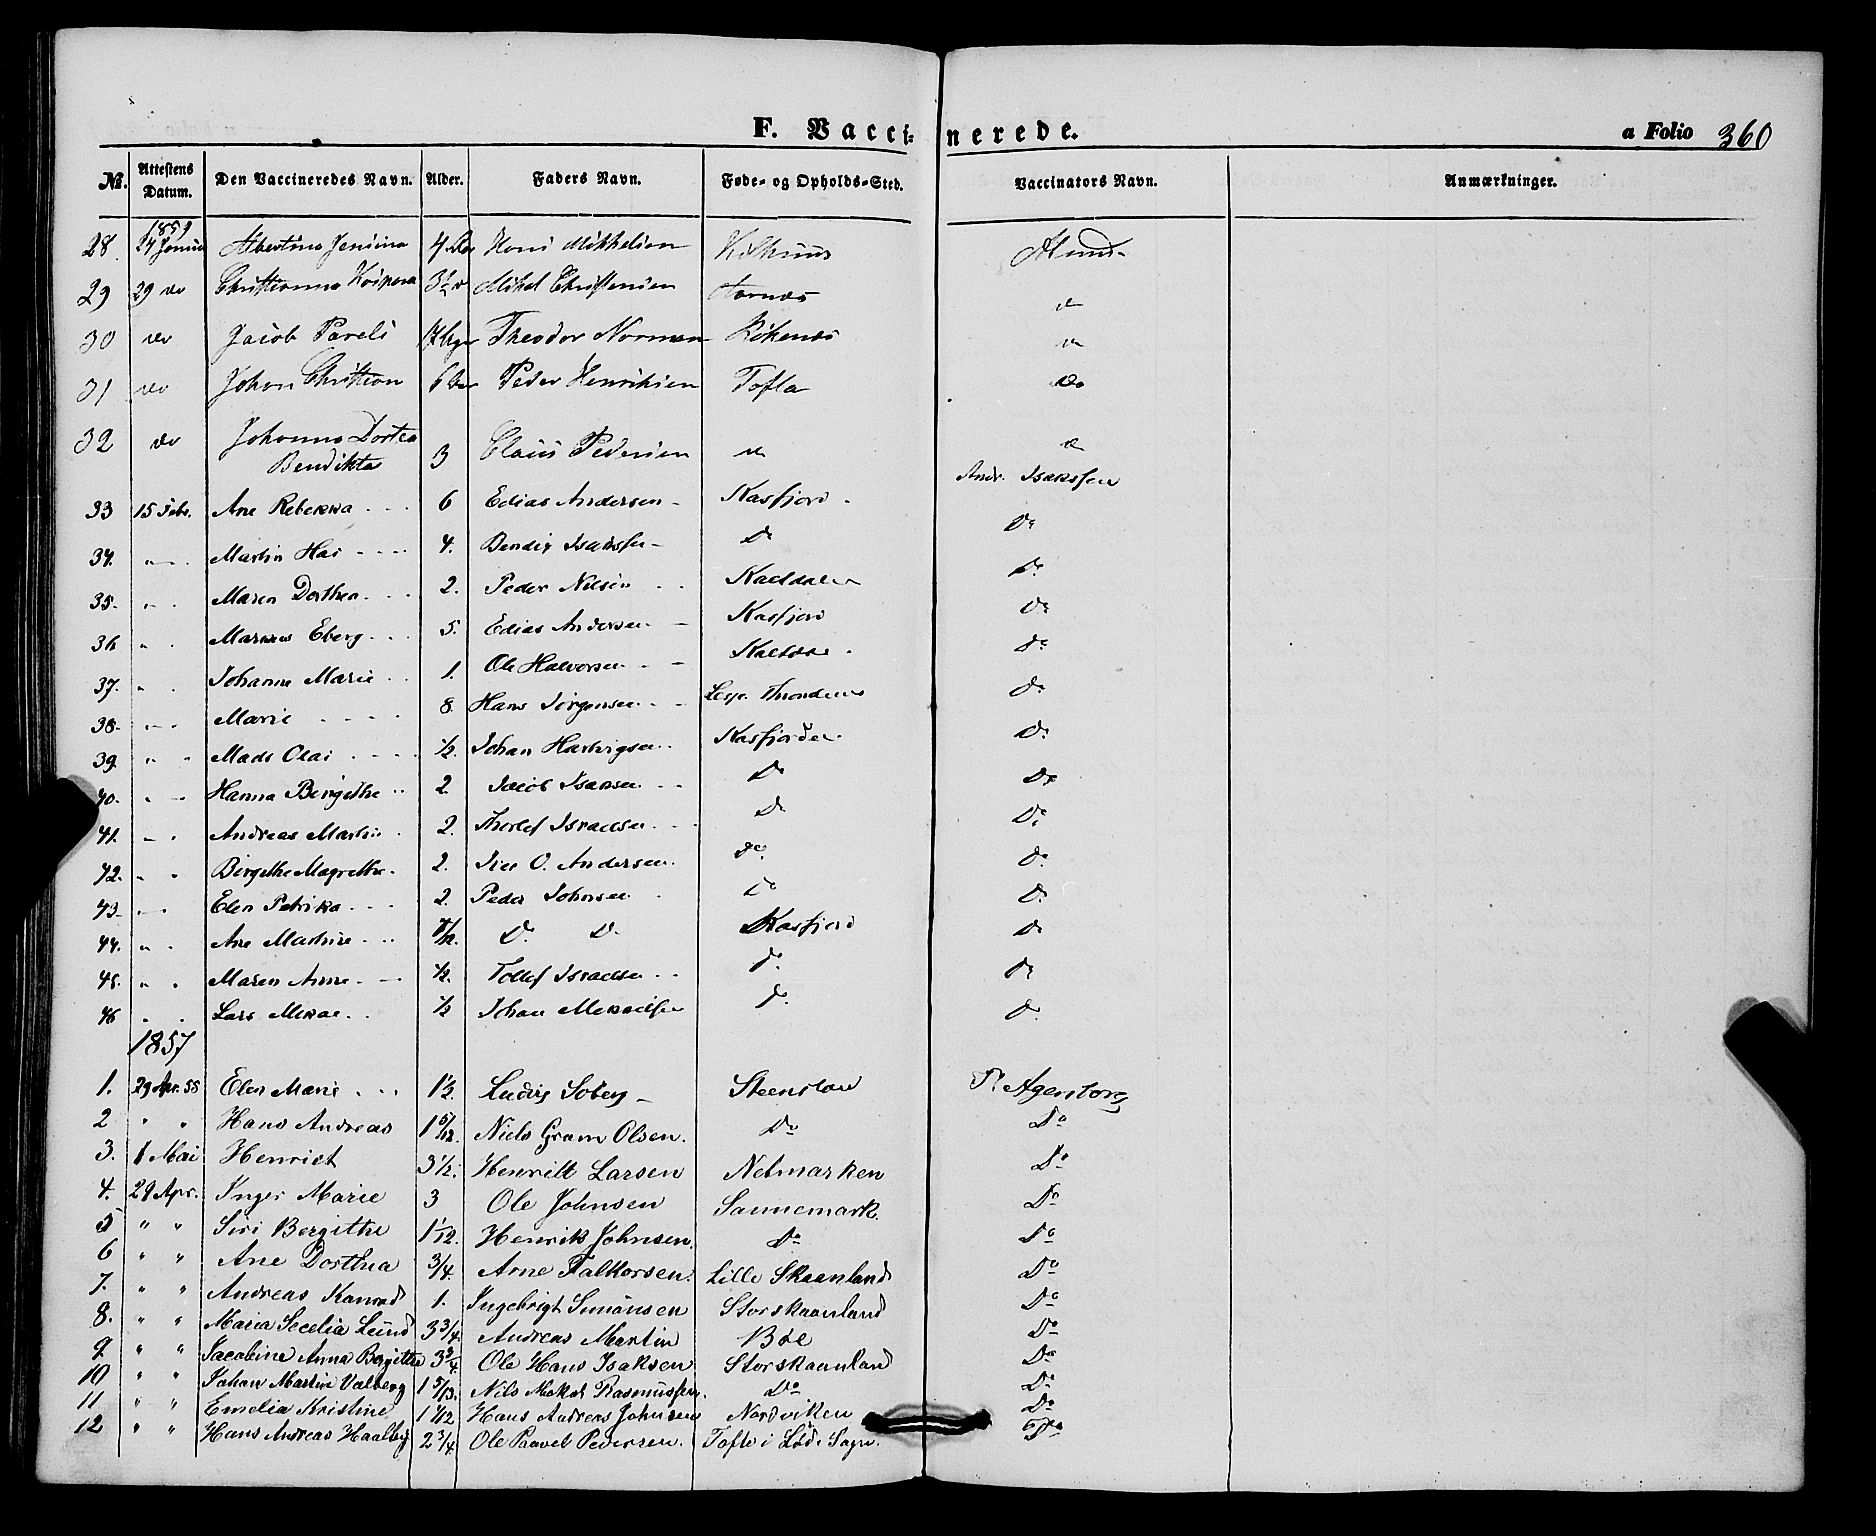 F. Vaccinerede. a Folio 360
Nr. Attestens Datum. Den Vaccineredes Navn. Alder. Faders Navn. Føde- og Opholds-Sted. Vaccinators Navn. Anmærkninger.
28. 24 Albertine Jensine 4 Hans Mikkelsen Kilhuus
29 29 do 3½ Mikel Christensen
30 do Jacob Pareli Theodor Norman Røkenes
31 do Johan Christian 6 Peder Henriksen Tofta do
32 do Johanna Dortea
Bendikta 3 Claus Pedersen
33 15 Febr. Ane Rebekka 6 Edias Andersen Kasfjord Andr. Isaksen
34. " Martin Hai 4. Bendix Isaksen Do Do
35. " Maren Dorthea 2. Peder Nilsen Kaeldalen Do
36 " Markus Eberg 5. Edias Andersen Kasfjord Do
37. " Johanne Marie 1. Ole Halvorsen Do
38. " Marie 8 Hans Jørgensen Thronden Do
39. " Mads Olai ½. Johan Hartvigsen Kasfjorden Do
40. " Hanna Bergethe 2. Jacob Isaksen Do Do
41. " Andreas Martin 2. Israelsen Do Do
42. " Birgethe Magrethe 2. Iver O. Andersen Do Do
43. " Elen Petrika 2. Peder Johnsen Do Do
44. " Ane Martine Do Do Kasfjord Do
45. " Maren Anne ½. Tollef Israelsen Do Do
46 " Lars Mekal ½ Johan Mekaelsen Do Do
1857
1. 29 Apr. 55 Elen Marie 1½. Ludvig Soberg Steensland P. Agersborg
2 " " Hans Andreas 1 5/12. Niels Gram Olsen. Do Do
3. 1 Mai Henriet 3½. Henrik Larsen Melmarken Do
4. 29 Apr. Inger Marie 3 Ole Johnsen Sannemark. Do
5 " " Siri Bergithe 1 1/12. Henrik Johnsen. Do Do
6 " " Ane Dorthea 3/4. Arne Falkorsen. Lille Skaanland Do
7. " " Andreas Konrad 1. Ingebrigt Simonsen Storskaanland Do
8. " " Maria Secelia Lund 3 3/4. Andreas Martin Böe Do
9 " " Jacobine Anna Bergitte 3 3/4 Ole Hans Isaksen Storskaanland Do
10 " " Johan Martin Valberg 1 5/12. Nils Mekal Rasmussen. Do Do
11 " " Emelia Kristine 1 1/12 Hans Andreas Johnsen Nordviken Do
12 " " Hans Andreas Haalberg 2 3/4. Ole Paavel Pedersen. Tofte i Lød. Sogn. Do